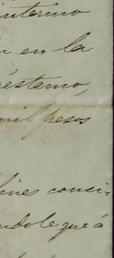 interino
en la
éstamo,
mil pesos
fines consi-
ndole que á